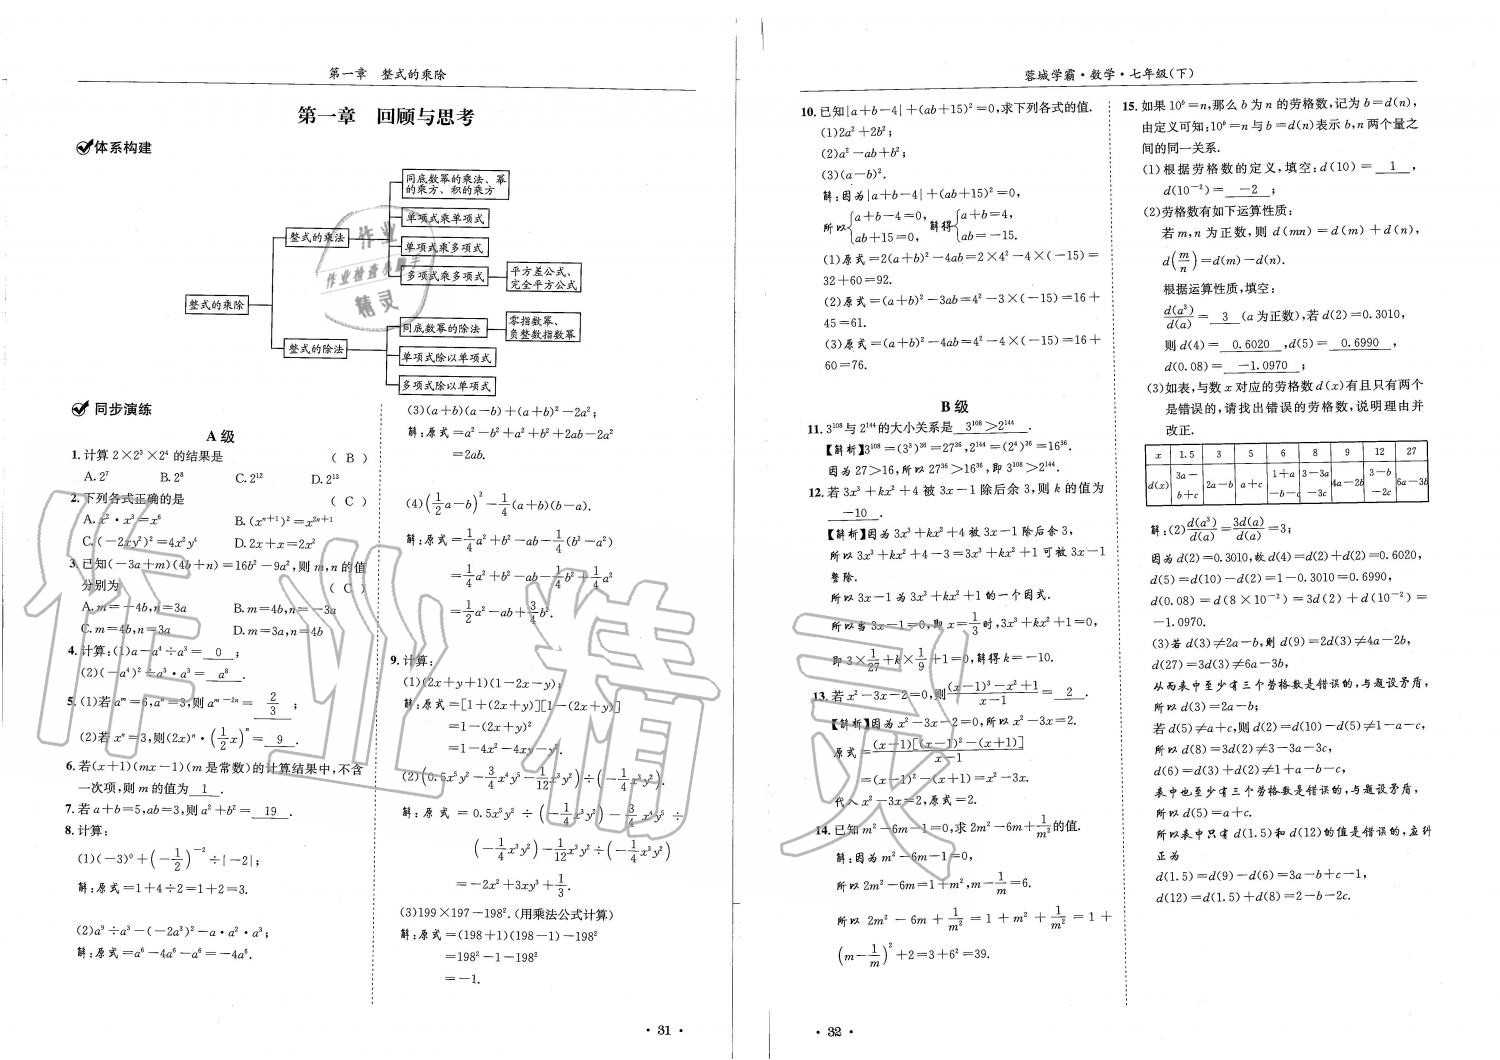 第一章 整式的乘除
第一章 回顾与思考
体系构建
整式的乘除
整式的乘法
整式的除法
同底数幂的乘法、幂
的乘方、积的乘方
单项式乘单项式
单项式乘多项式
多项式乘多项式
平方差公式、
完全平方公式
同底数幂的除法
零指数幂、
负整数指数幂
单项式除以单项式
多项式除以单项式
同步演练
A 级
1. 计算 2×2³×2⁴ 的结果是 ( B )
A. 2⁷ B. 2⁸ C. 2¹² D. 2¹³
2. 下列各式正确的是 ( C )
A. x²·x³=x⁶ B. (xⁿ⁺¹)²=x²ⁿ⁺¹
C. (−2xy²)²=4x²y⁴ D. 2x+x=2x²
3. 已知(−3a+m)(4b+n)=16b²−9a²,则 m,n 的值
分别为 ( C )
A. m=−4b,n=3a B. m=4b,n=−3a
C. m=4b,n=3a D. m=3a,n=4b
4. 计算:(1)a−a⁴÷a³= 0 ;
(2)(−a⁴)²÷a³·a³= a⁸ .
5. (1)若 aᵐ=6,aⁿ=3,则 aᵐ⁻²ⁿ= 2/3 ;
(2)若 xⁿ=3,则(2x)ⁿ·(1/2 x)ⁿ= 9 .
6. 若(x+1)(mx−1)(m 是常数)的计算结果中,不含
一次项,则 m 的值为 1 .
7. 若 a+b=5,ab=3,则 a²+b²= 19 .
8. 计算:
(1)(−3)⁰+(−1/2)⁻²÷|−2|;
解:原式=1+4÷2=1+2=3.
(2)a⁹÷a³−(−2a³)²−a·a²·a³;
解:原式=a⁶−4a⁶−a⁶=−4a⁶.
(3)(a+b)(a−b)+(a+b)²−2a²;
解:原式=a²−b²+a²+b²+2ab−2a²
=2ab.
(4)(1/2 a−b)²−1/4(a+b)(b−a).
解:原式=1/4 a²+b²−ab−1/4(b²−a²)
=1/4 a²+b²−ab−1/4 b²+1/4 a²
=1/2 a²−ab+3/4 b².
9. 计算:
(1)(2x+y+1)(1−2x−y);
解:原式=[1+(2x+y)][1−(2x+y)]
=1−(2x+y)²
=1−4x²−4xy−y².
(2)(0.5x⁵y²−3/4 x⁴y⁵−1/12 x³y²)÷(−1/4 x³y²).
解:原式=0.5x⁵y²÷(−1/4 x³y²)−3/4 x⁴y⁵÷
(−1/4 x³y²)−1/12 x³y²÷(−1/4 x³y²)
=−2x²+3xy³+1/3.
(3)199×197−198².(用乘法公式计算)
解:原式=(198+1)(198−1)−198²
=198²−1−198²
=−1.
· 31 ·
蓉城学霸·数学·七年级(下)
10. 已知|a+b−4|+(ab+15)²=0,求下列各式的值.
(1)2a²+2b²;
(2)a²−ab+b²;
(3)(a−b)².
解:因为|a+b−4|+(ab+15)²=0,
所以{a+b−4=0, ab+15=0, 解得{a+b=4, ab=−15.
(1)原式=2(a+b)²−4ab=2×4²−4×(−15)=
32+60=92.
(2)原式=(a+b)²−3ab=4²−3×(−15)=16+
45=61.
(3)原式=(a+b)²−4ab=4²−4×(−15)=16+
60=76.
B 级
11. 3¹⁰⁸与 2¹⁴⁴的大小关系是 3¹⁰⁸>2¹⁴⁴ .
【解析】3¹⁰⁸=(3³)³⁶=27³⁶,2¹⁴⁴=(2⁴)³⁶=16³⁶.
因为 27>16,所以 27³⁶>16³⁶,即 3¹⁰⁸>2¹⁴⁴.
12. 若 3x³+kx²+4 被 3x−1 除后余 3,则 k 的值为
−10 .
【解析】因为 3x³+kx²+4 被 3x−1 除后余 3,
所以 3x³+kx²+4−3=3x³+kx²+1 可被 3x−1
整除.
所以 3x−1 为 3x³+kx²+1 的一个因式.
所以当 3x−1=0,即 x=1/3时,3x³+kx²+1=0,
即 3×1/27+k×1/9+1=0,解得 k=−10.
13. 若 x²−3x−2=0,则((x−1)³−x²+1)/(x−1)= 2 .
【解析】因为 x²−3x−2=0,所以 x²−3x=2.
原式=((x−1)[(x−1)²−(x+1)])/(x−1)
=(x−1)²−(x+1)=x²−3x.
代入 x²−3x=2,原式=2.
14. 已知 m²−6m−1=0,求 2m²−6m+1/m²的值.
解:因为 m²−6m−1=0,
所以 2m²−6m=1+m²,m−1/m=6.
所以 2m²−6m+1/m²=1+m²+1/m²=1+
(m−1/m)²+2=3+6²=39.
15. 如果 10ᵇ=n,那么 b 为 n 的劳格数,记为 b=d(n),
由定义可知:10ᵇ=n 与 b=d(n)表示 b,n 两个量之
间的同一关系.
(1)根据劳格数的定义,填空:d(10)= 1 ,
d(10⁻²)= −2 ;
(2)劳格数有如下运算性质:
若 m,n 为正数,则 d(mn)=d(m)+d(n),
d(m/n)=d(m)−d(n).
根据运算性质,填空:
d(a³)/d(a)= 3 (a 为正数),若 d(2)=0.3010,
则 d(4)= 0.6020 ,d(5)= 0.6990 ,
d(0.08)= −1.0970 ;
(3)如表,与数 x 对应的劳格数 d(x)有且只有两个
是错误的,请找出错误的劳格数,说明理由并
改正.
x 1.5 3 5 6 8 9 12 27
d(x) 3a−b+c 2a−b a+c 1+a−b−c 3−3a−3c 4a−2b 3−b−2c 6a−3b
解:(2)d(a³)/d(a)=3d(a)/d(a)=3;
因为 d(2)=0.3010,故 d(4)=d(2)+d(2)=0.6020,
d(5)=d(10)−d(2)=1−0.3010=0.6990,
d(0.08)=d(8×10⁻²)=3d(2)+d(10⁻²)=
−1.0970.
(3)若 d(3)≠2a−b,则 d(9)=2d(3)≠4a−2b,
d(27)=3d(3)≠6a−3b,
从而表中至少有三个劳格数是错误的,与题设矛盾,
所以 d(3)=2a−b;
若 d(5)≠a+c,则 d(2)=d(10)−d(5)≠1−a−c,
所以 d(8)=3d(2)≠3−3a−3c,
d(6)=d(3)+d(2)≠1+a−b−c,
表中也至少有三个劳格数是错误的,与题设矛盾,
所以 d(5)=a+c.
所以表中只有 d(1.5)和 d(12)的值是错误的,应纠
正为
d(1.5)=d(9)−d(6)=3a−b+c−1,
d(12)=d(1.5)+d(8)=2−b−2c.
· 32 ·
作业
作业检查小助手
精灵
作业精灵